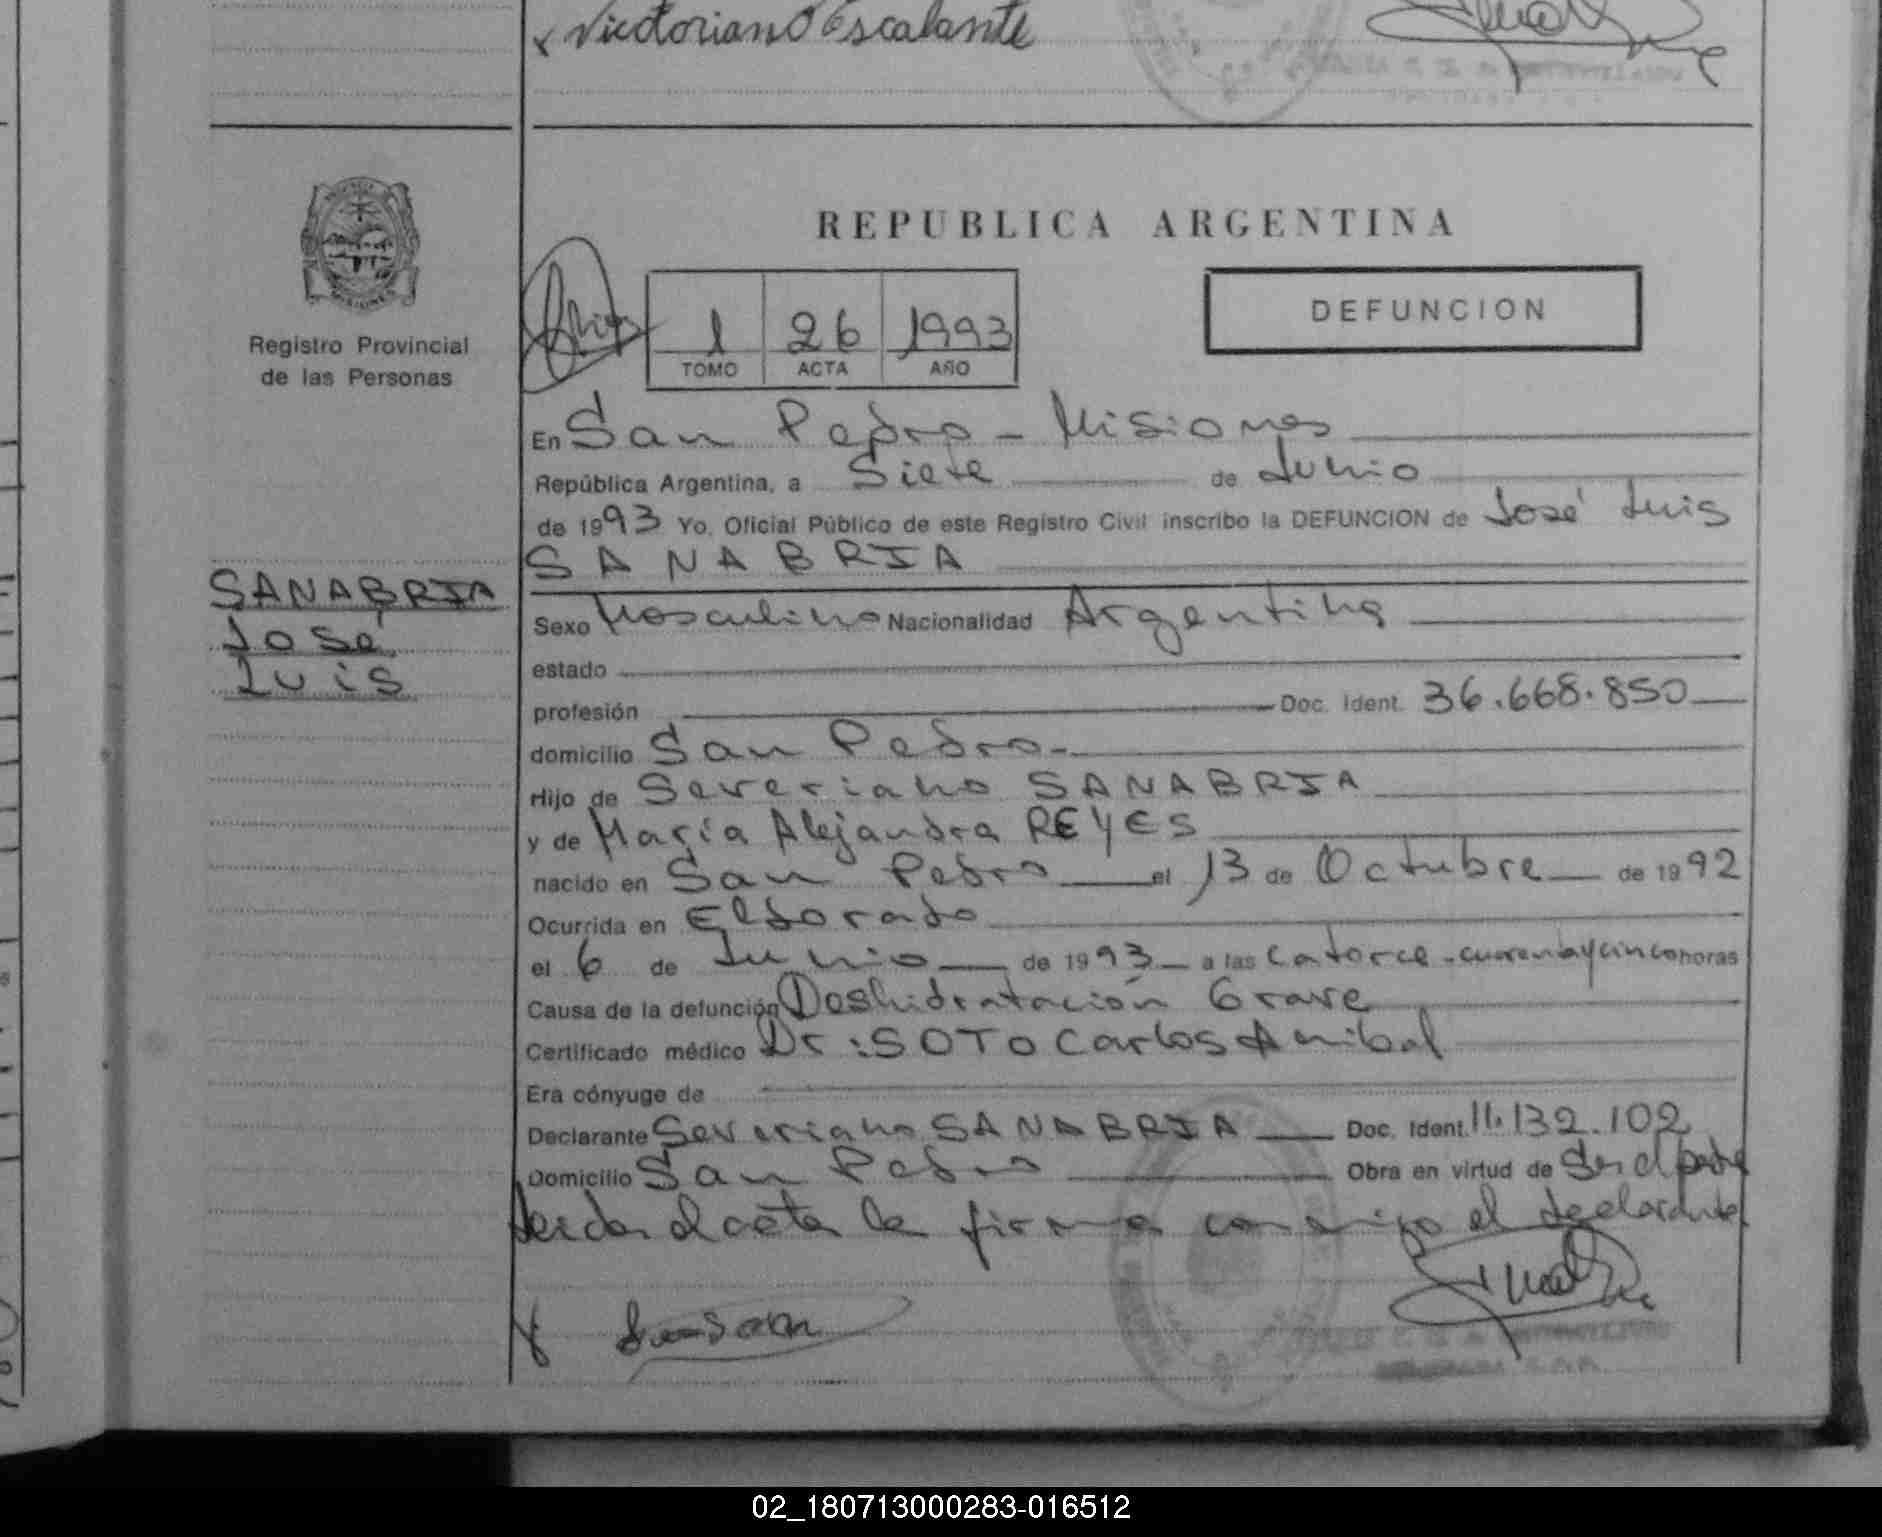 x Victoriano Escalante
REPUBLICA ARGENTINA
Registro Provincial
de las Personas
1 26 1993
TOMO ACTA AÑO
DEFUNCION
En San Pedro - Misiones
República Argentina, a Siete de Junio
de 1993 Yo, Oficial Público de este Registro Civil inscribo la DEFUNCION de José Luis
SANABRIA
SANABRIA
José
Luis
Sexo Masculino Nacionalidad Argentina
estado
profesión Doc. Ident. 36.668.850
domicilio San Pedro.
Hijo de Severiano SANABRIA
y de María Alejandra REYES
nacido en San Pedro el 13 de Octubre de 1992
Ocurrida en Eldorado
el 6 de Junio de 1993 a las catorce - cuarenta y cinco horas
Causa de la defunción Deshidratación Grave
Certificado médico Dr: SOTO Carlos Anibal
Era cónyuge de
Declarante Severiano SANABRIA Doc. Ident. 11.132.102
Domicilio San Pedro Obra en virtud de Ser el padre
Leida el acta la firma conmigo el declarante
02_180713000283-016512